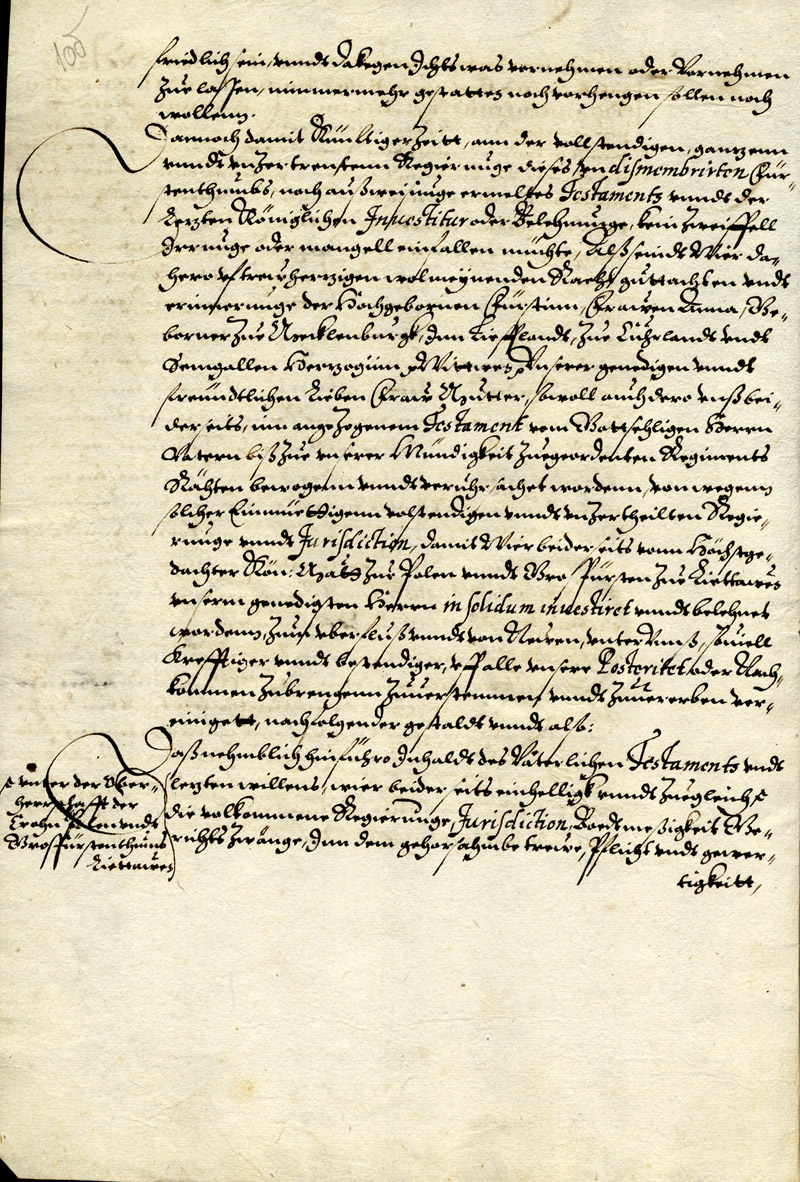 106
friedlich sein, vnndt dakegen Ichts was vornehmen oder Vornehmen
Zue lassen, nimmermehr gestatten noch vorhengen sollen noch
wollenn.
Dannoch damit Künfftiger Zeitt, ann der vollstendigen, gantzenn
vnndt vnzertrenstenn Regierunge dieses vn dismembrirten Für-
stenthumbs, nach außweisunge ermeltes Testaments vnndt der
Letzten Königlichen Inuestitur oder Belehnunge, kein Zweiffell
Irrunge oder mangell einfallen müchte, Alß seindt Wier da-
hero vf treuhertzigen wolmeynenden Raeht, guttachten vndt
erinnerunge der Hochgebornen Fürstinn, Frauwen Anna, Ge-
borner Zue Mecklenburgk, Inn Liefflandt, Zue Cuhrlandt vndt
Semgallen Hertzoginn, Wittwen, Vnserer genedigen vnndt
freündtlichen Lieben Fraw Mutter, sowoll auch dero vnß bei-
derseits, inn angezogenem Testament vom Gottsehligen Herrn
Vatern biß Zue vnserer Mündigkeit Zuegeordenten Regiments
Rähten bewogenn vnndt veruhrsachet wordenn, von wegenn
solcher Einmüettigenn volstendigen vnndt vnzertheilten Regie-
runge vnndt Jurisdiction, damit Wier beiderseits vonn Höchstge-
dachter Kön: Matt Zue Polen vnndt Grosfürsten Zue Liettawen
vnserm genedigsten Herrn in solidum inuestiret vnndt belehnet
wordenn, Zum vberfluß vnndt von Neuen, vnter Vnß, souiell
Krefftiger vnndt bestendiger, vff alle vnsere Posteritet oder Nach-
kommen Zubrengenn Zuuerstemmen, vnndt Zuuererben ver-
einigett, nachfolgender gestaldt vnndt also:
Daß nehmblich hinführo Inhaldt des Väterlichen Testaments vndt
letzten willens, wier beiderseits einhelligk vnndt Zuegleich
die volkommene Regierunge, Jurisdiction, Bodtmeßigkeit Ge-
richts Zwange, Inn dem gehorsahmbe trewe, Pflicht vndt gewer-
tigkeitt,
vnter der Ober-
herrschafft der
Crohn Polen vndt
Grosfürstenthumb
Liettawen